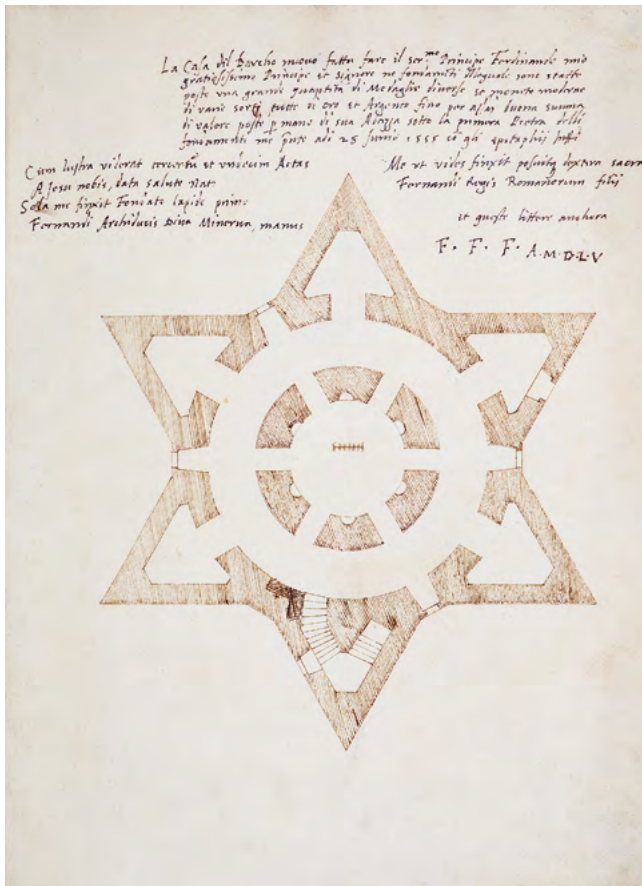 La Casa del Barcho nuovo fatta fare il ser^mo Principe Ferdinando mio
gratiosissimo Principe et signore ne fondamēti dlaquale sono state
poste una grande quantita di Medaglie diverse et monete moderne
di varie sorti tutte di oro et Argento fino per assai buona summa
di valore poste p mano di sua Altezza sotto la primera Pietra delli
fondamenti me pnte adi 28 Junio 1555 cō gli epitaphii
Cum lustra viderat tercentū et undecim Aetas
A Jesu nobis, data salute
Sola me finxit Fondato lapide primo
Fernandi Archiducis Diva Minerva, manus
Me ut vides finxit posuitq dextera sacra
Fernandi Regis Romanorum filii
et queste littere anchora
F. F. F. A. M. D. L. V